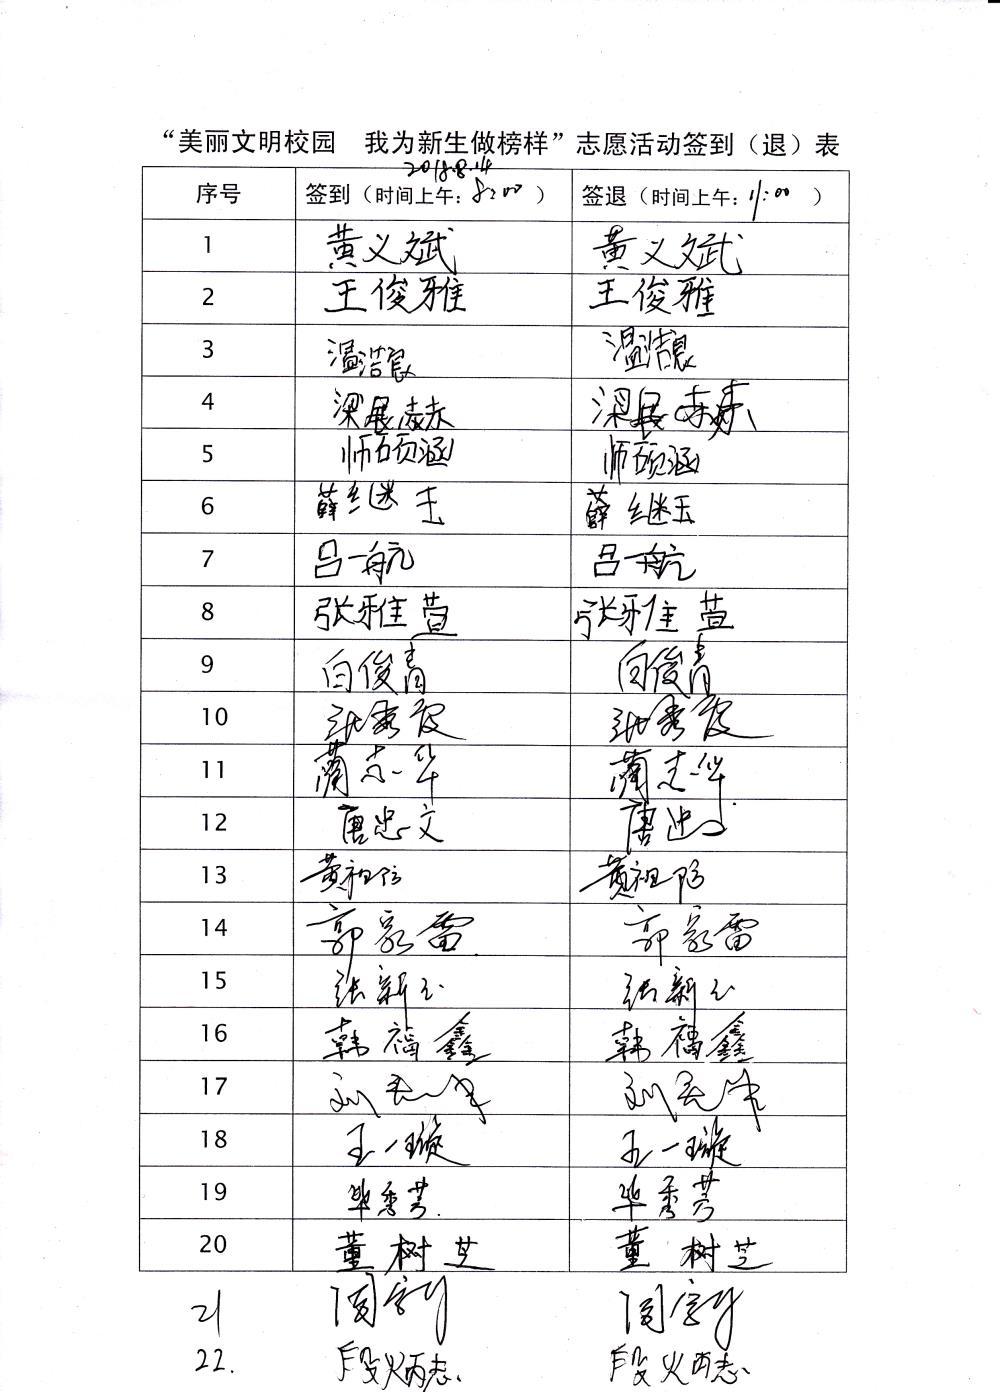 “美丽文明校园 我为新生做榜样”志愿活动签到（退）表
2018.8.14
序号 签到（时间上午：8:00 ） 签退（时间上午：11:00 ）
1 黄义斌 黄义斌
2 王俊雅 王俊雅
3 温浩良 温浩良
4 梁展赫 梁展赫
5 师硕涵 师硕涵
6 薛继玉 薛继玉
7 吕一航 吕一航
8 张雅萱 张雅萱
9 白俊青 白俊青
10 张秀霞 张秀霞
11 蔺志华 蔺志华
12 唐忠文 唐忠文
13 黄祖 黄祖
14 郭家雷 郭家雷
15 张新 张新
16 韩福鑫 韩福鑫
17 刘 刘
18 王一璇 王一璇
19 毕秀芳 毕秀芳
20 董树芝 董树芝
21
22. 段炳志 段炳志